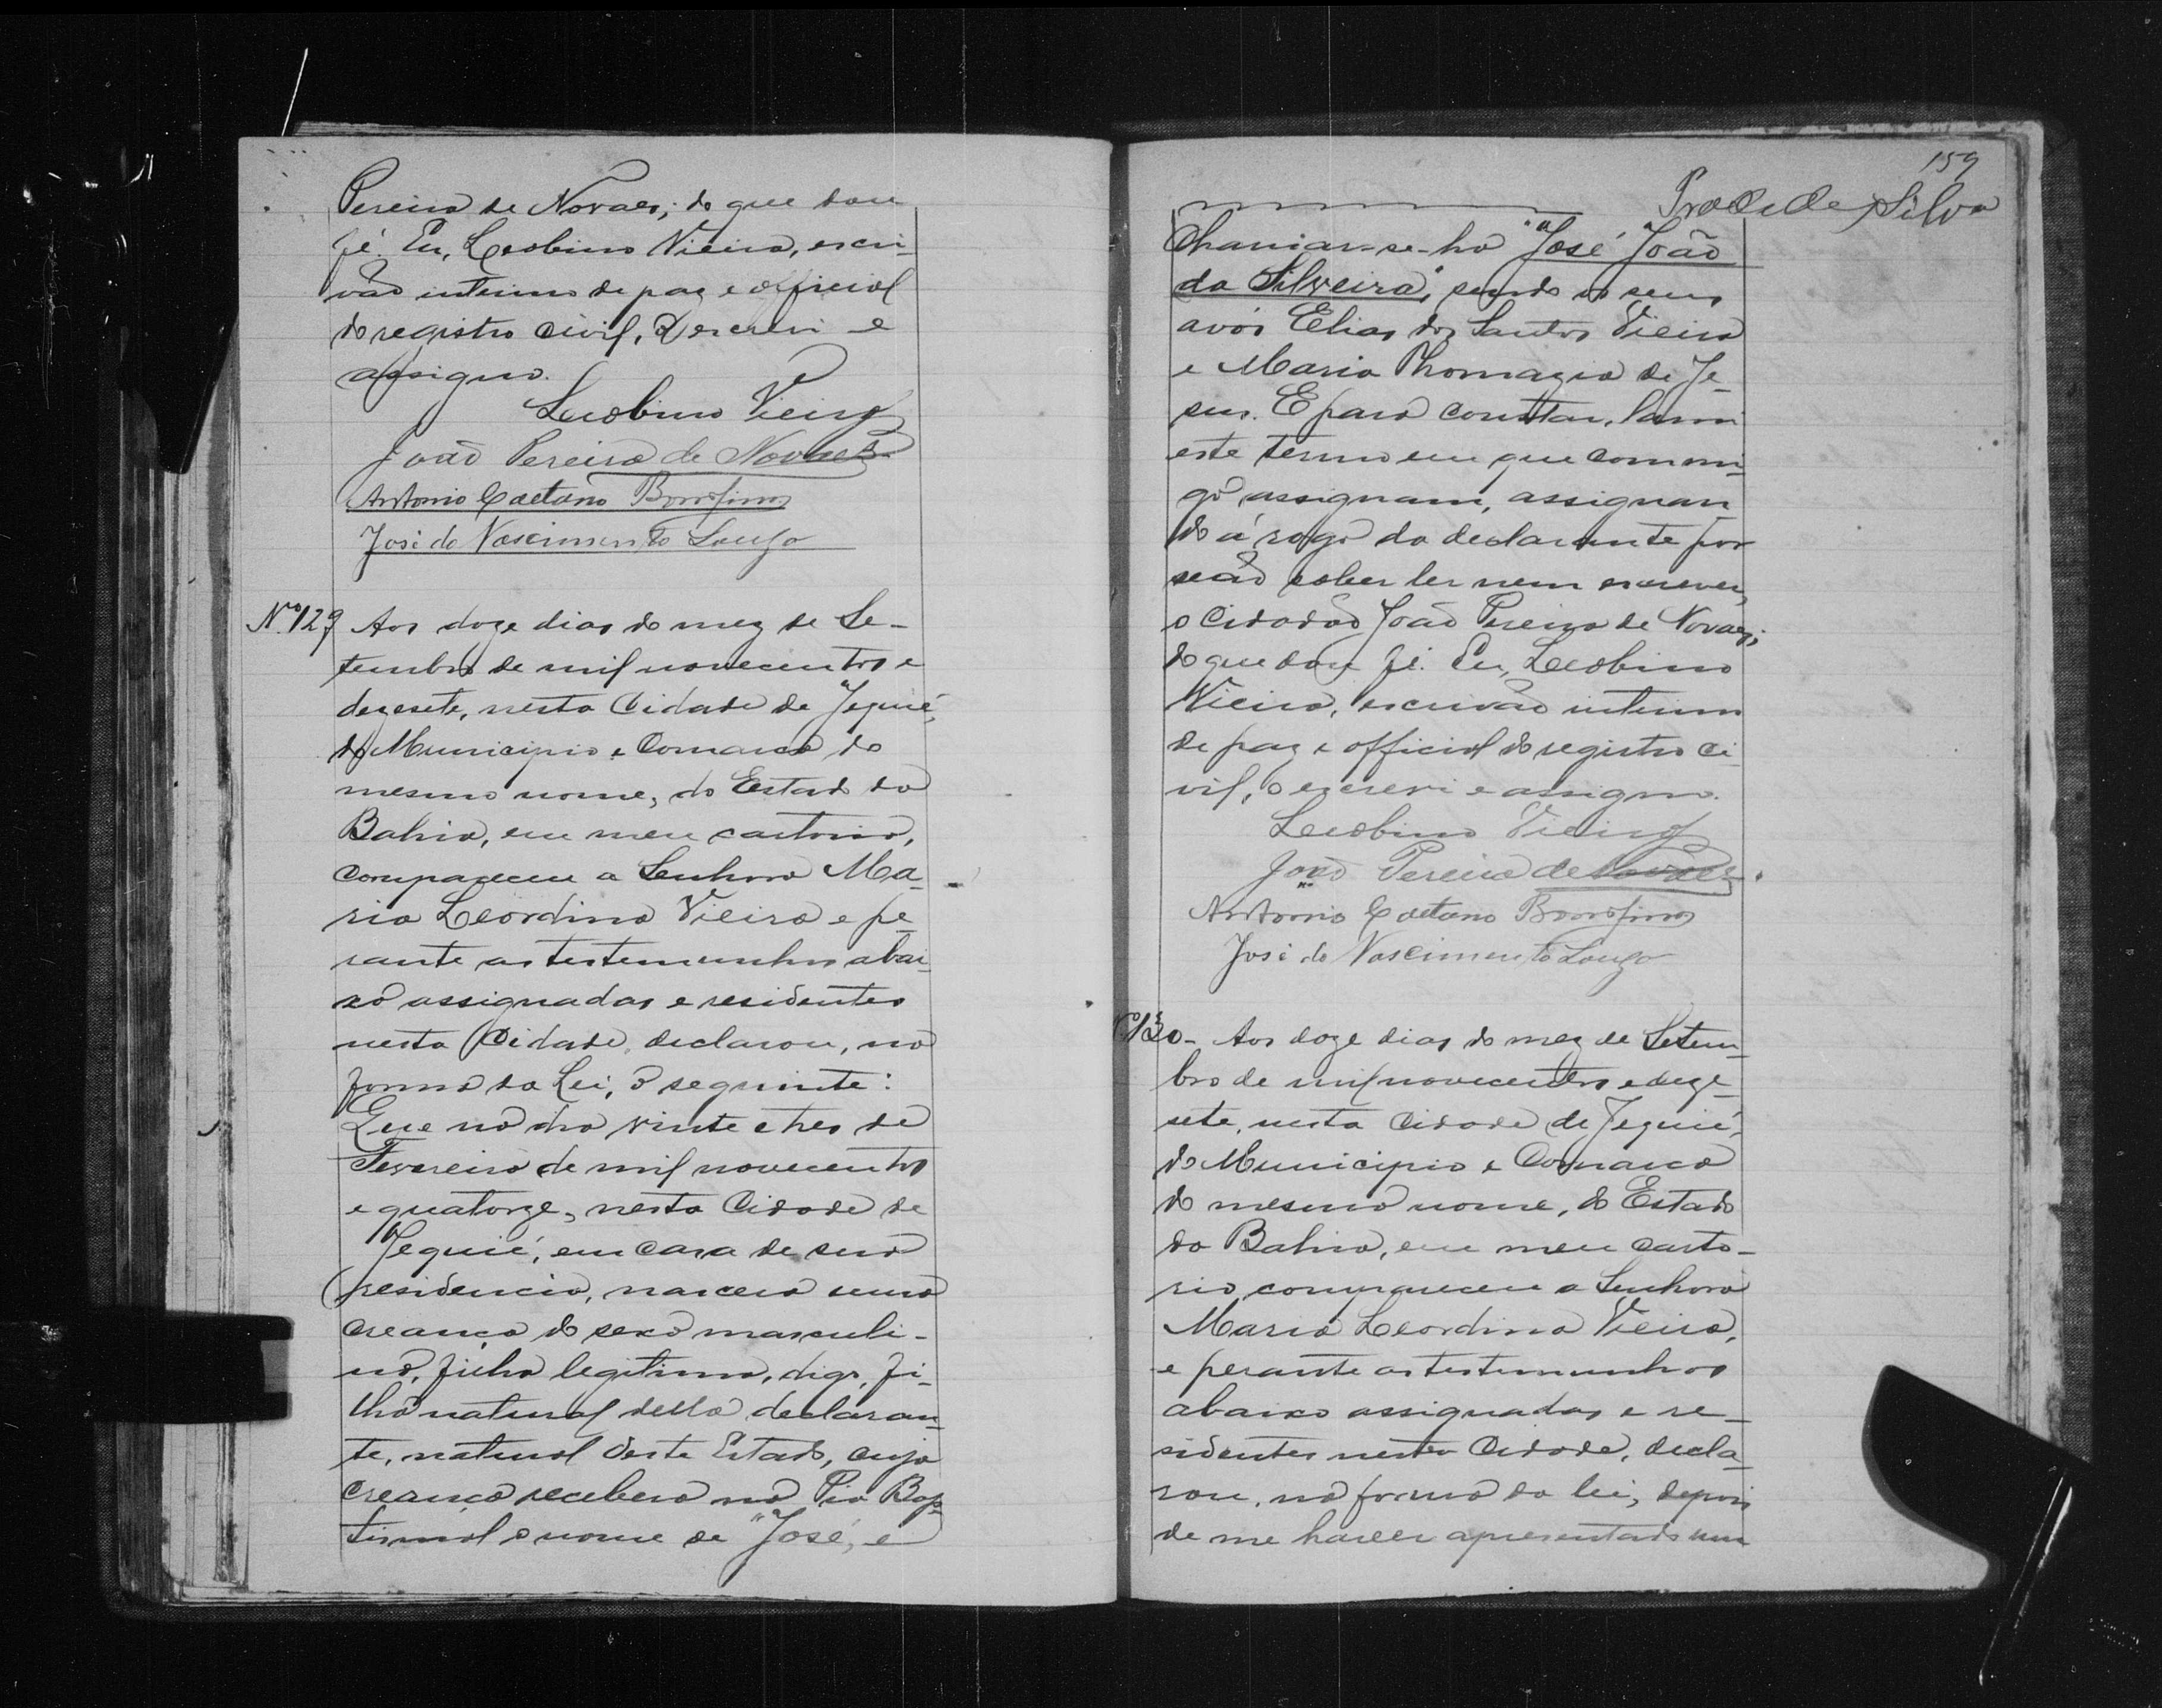 Pereira de Novaes; do que dou
fé. Eu, Leobino Vieira, escri-
vão interino de paz e official
do registro civil, o escrevi e
assigno.
Leobino Vieira
João Pereira de Novaes
Antonio Caetano Bomfim
José do Nascimento
Nº 129 Aos doze dias do mez de Se-
tembro de mil novecentos e
dezesete, nesta Cidade de Jequié,
do Municipio e Comarca do
mesmo nome, do Estado da
Bahia, em meu cartorio,
compareceu a Senhora Ma-
ria Leordina Vieira e pe-
rante as testemunhas abai-
xo assignadas e residentes
nesta Cidade, declarou, na
forma da Lei, o seguinte:
Que no dia vinte e tres de
Fevereiro de mil novecentos
e quatorze, nesta Cidade de
Jequié, em casa de sua
residencia, nascera uma
creança do sexo masculi-
no, filha legitima, digo, fi-
lho natural della declaran-
te, natural deste Estado, cuja
creança recebera na Pia Bap-
tismal o nome de "José, e
159
Prado e Silva
Chamar-se-ha "José João
da Silveira", sendo os seus
avós Elias dos Santos Vieira
e Maria Thomazia de Je-
sus. E para constar, lavrei
este termo em que commi-
go assignam, assignan-
do á rogo da declarante por
não saber ler nem escrever,
o Cidadão João Pereira de Novaes;
do que dou fé. Eu, Leobino
Vieira, escrivão interino
de paz e official do registro ci-
vil, o escrevi e assigno.
Leobino Vieira
João Pereira de Novaes
Antonio Caetano Bomfim
José do Nascimento
Nº 130 - Aos doze dias do mez de Setem-
bro de mil novecentos e deze-
sete, nesta Cidade de Jequié,
do Municipio e Comarca
do mesmo nome, do Estado
da Bahia, em meu carto-
rio compareceu a Senhora
Maria Leordina Vieira,
e perante as testemunhas
abaixo assignadas e re-
sidentes nesta Cidade, decla-
rou, na forma da lei, depois
de me haver apresentado um